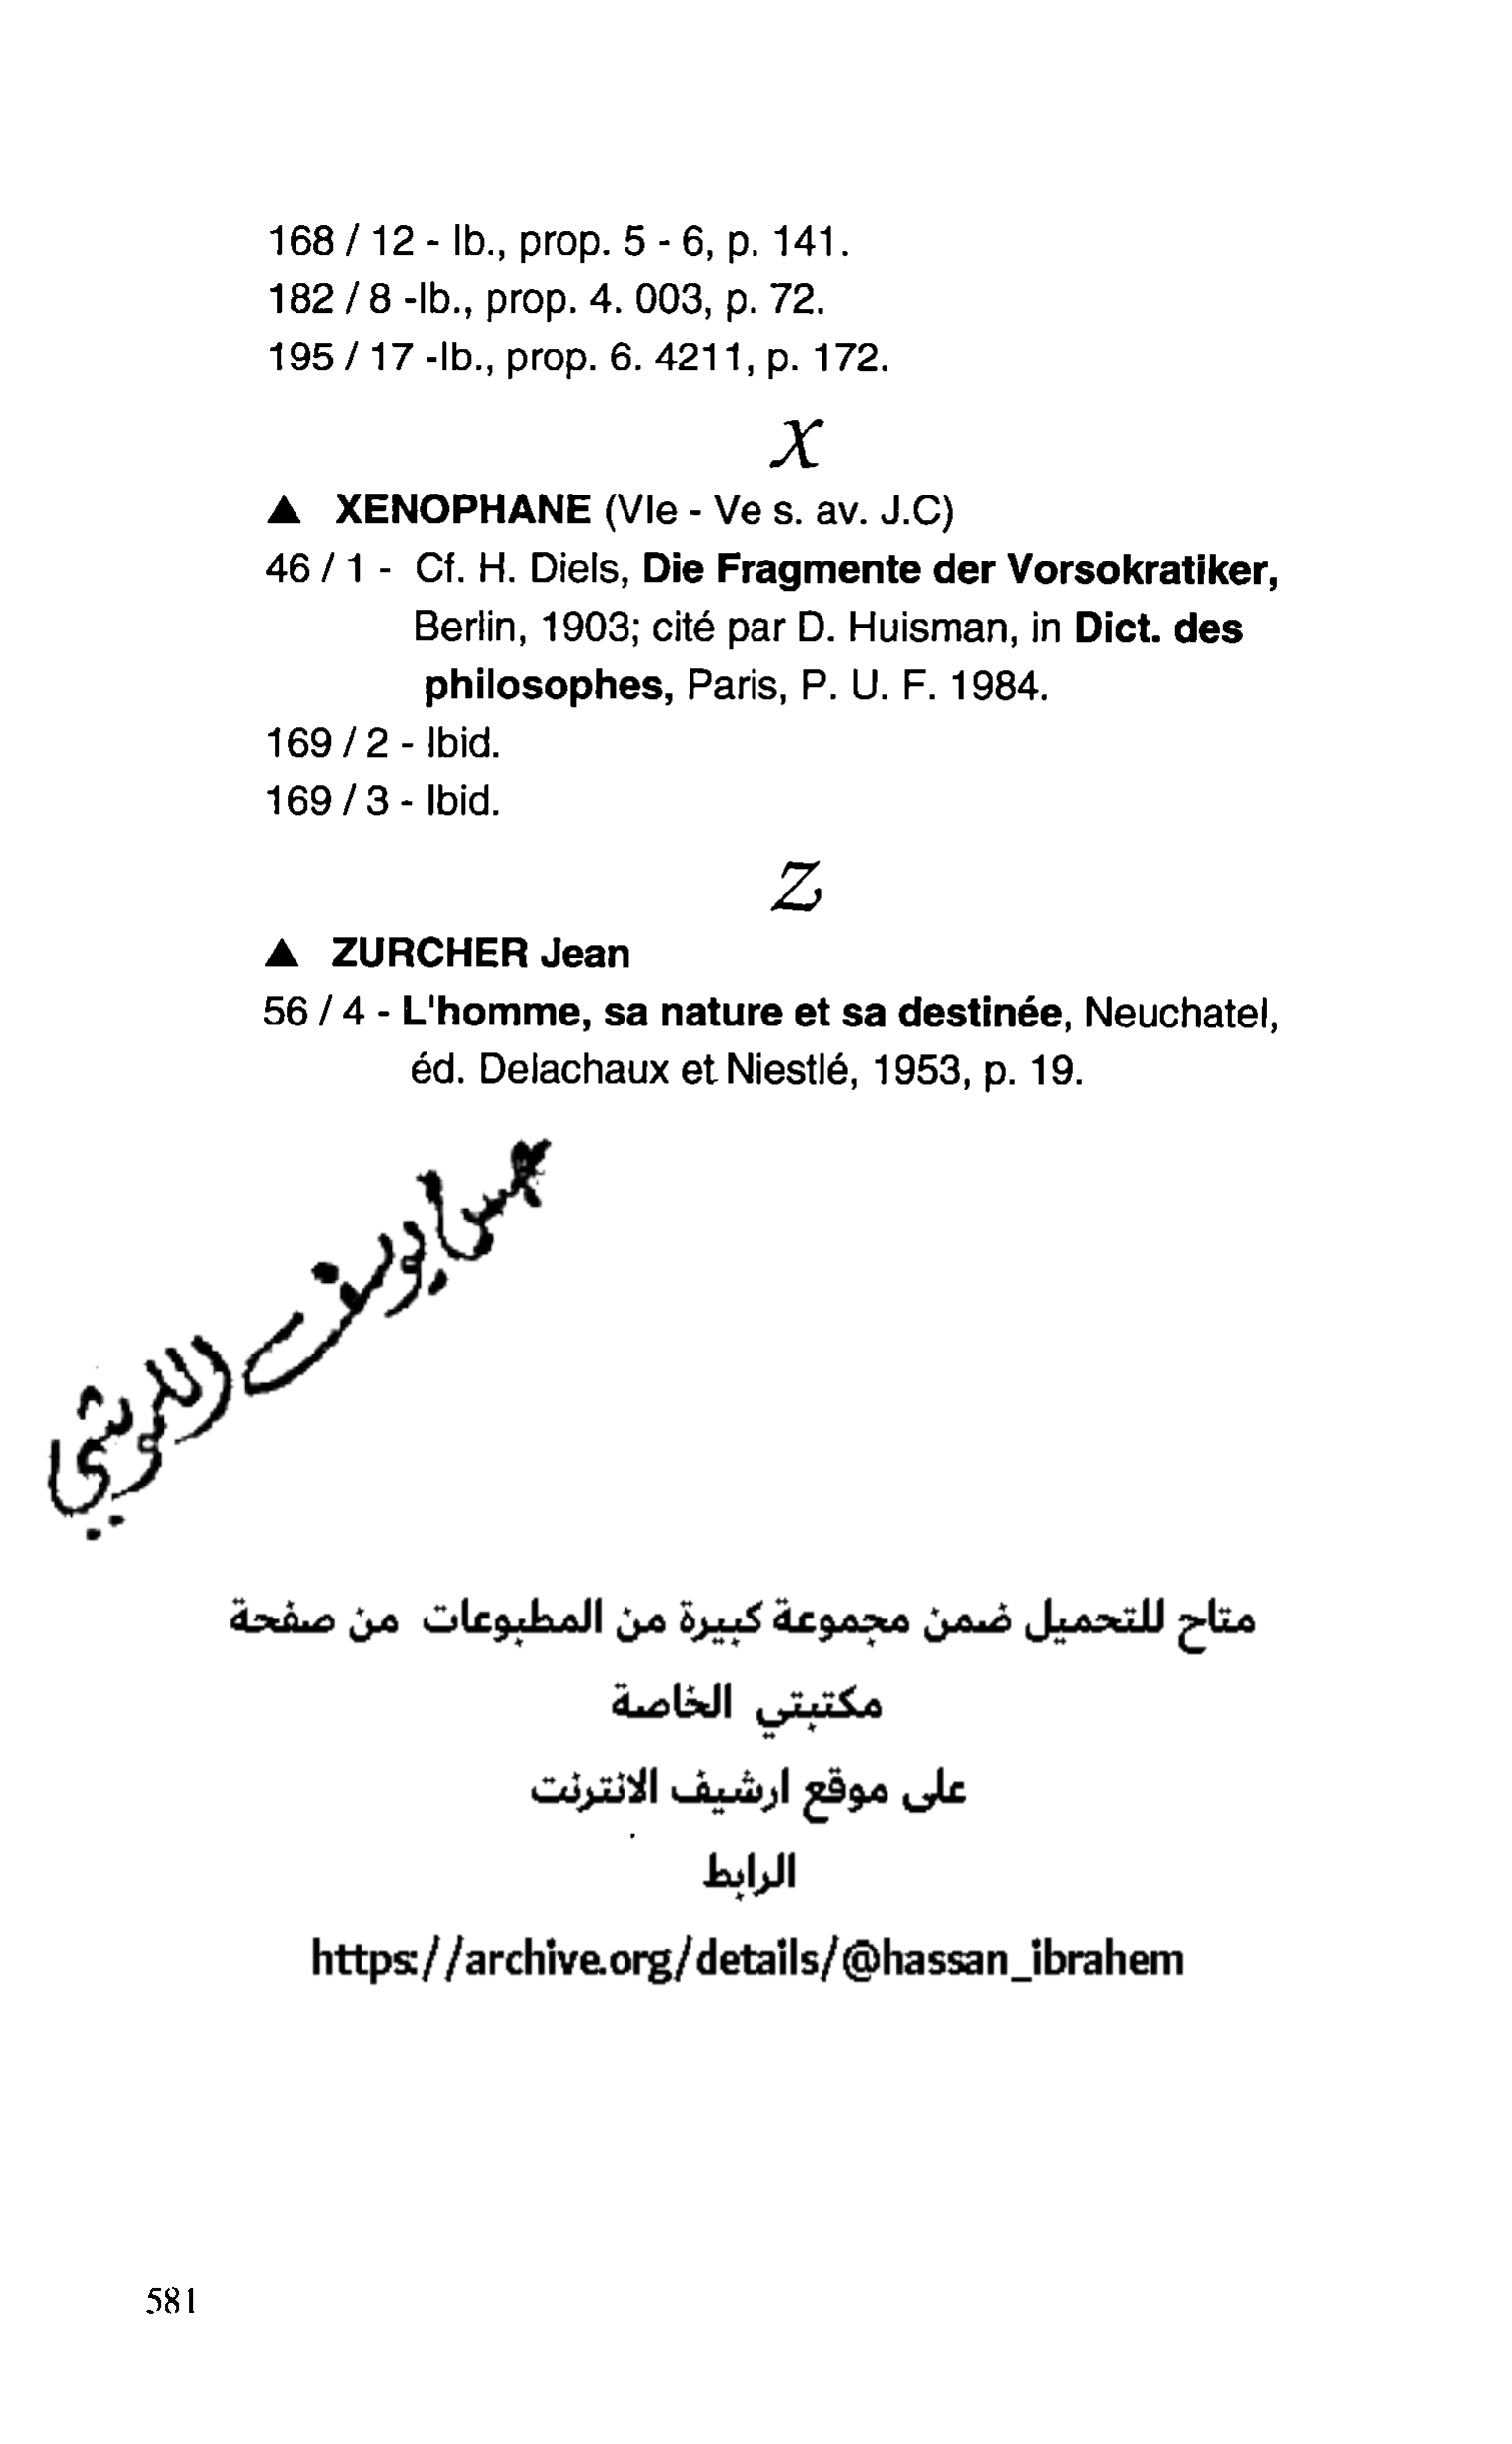 168 / 12 - Ib., prop. 5 - 6, p. 141.
182 / 8 -Ib., prop. 4. 003, p. 72.
195 / 17 -Ib., prop. 6. 4211, p. 172.
X
▲ XENOPHANE (VIe - Ve s. av. J.C)
46 / 1 - Cf. H. Diels, Die Fragmente der Vorsokratiker,
Berlin, 1903; cité par D. Huisman, in Dict. des
philosophes, Paris, P. U. F. 1984.
169 / 2 - Ibid.
169 / 3 - Ibid.
Z
▲ ZURCHER Jean
56 / 4 - L'homme, sa nature et sa destinée, Neuchatel,
éd. Delachaux et Niestlé, 1953, p. 19.
يوسف
متاح للتحميل ضمن مجموعة كبيرة من المطبوعات من صفحة
مكتبتي الخاصة
على موقع ارشيف الانترنت
الرابط
https://archive.org/details/@hassan_ibrahem
581